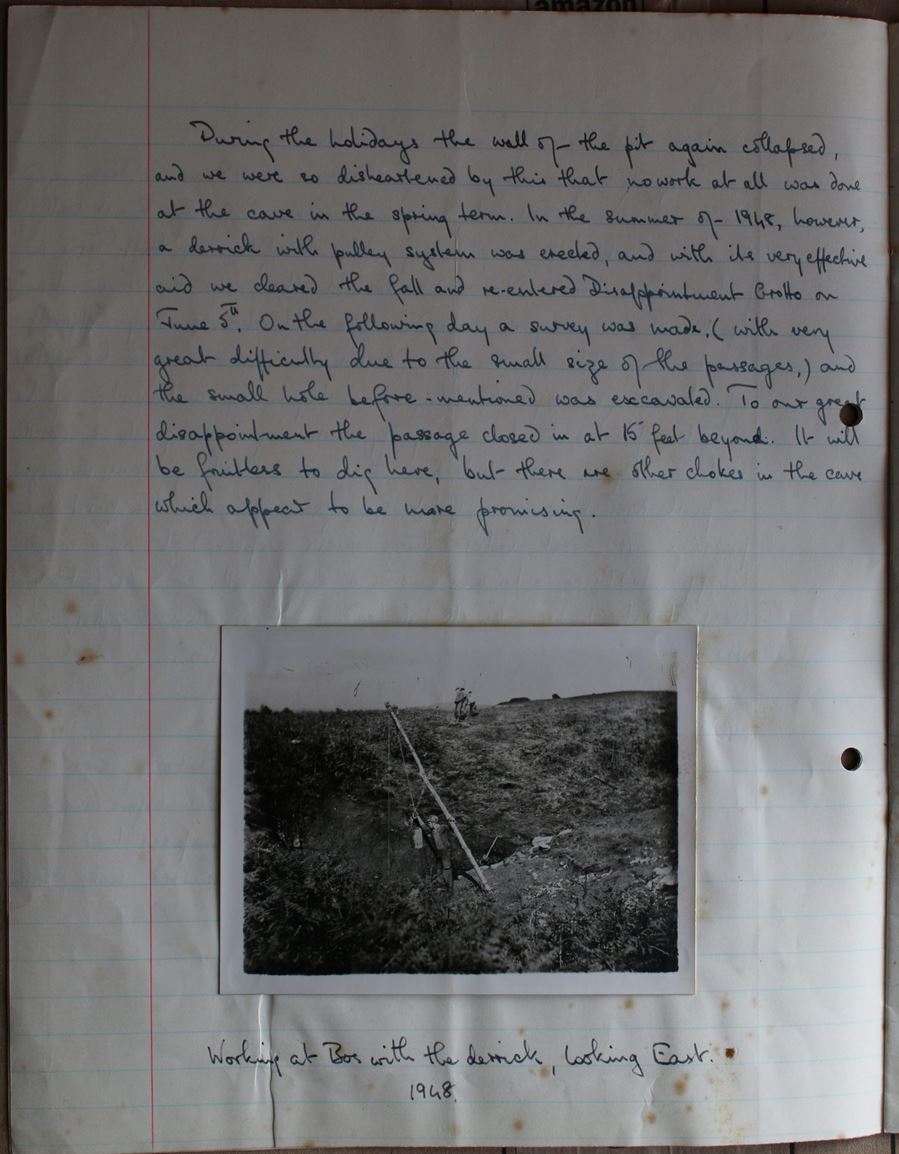 amazon
During the holidays the wall of the pit again collapsed,
and we were so disheartened by this that no work at all was done
at the cave in the spring term. In the summer of 1948, however,
a derrick with pulley system was erected, and with its very effective
aid we cleared the fall and re-entered Disappointment Grotto on
June 5th. On the following day a survey was made, (with very
great difficulty due to the small size of the passages,) and
the small hole before-mentioned was exccavated. To our great
disappointment the passage closed in at 15 feet beyond. It will
be fruitless to dig here, but there are other chokes in the cave
which appear to be more promising.
Working at Bos with the derrick, looking East.
1948.